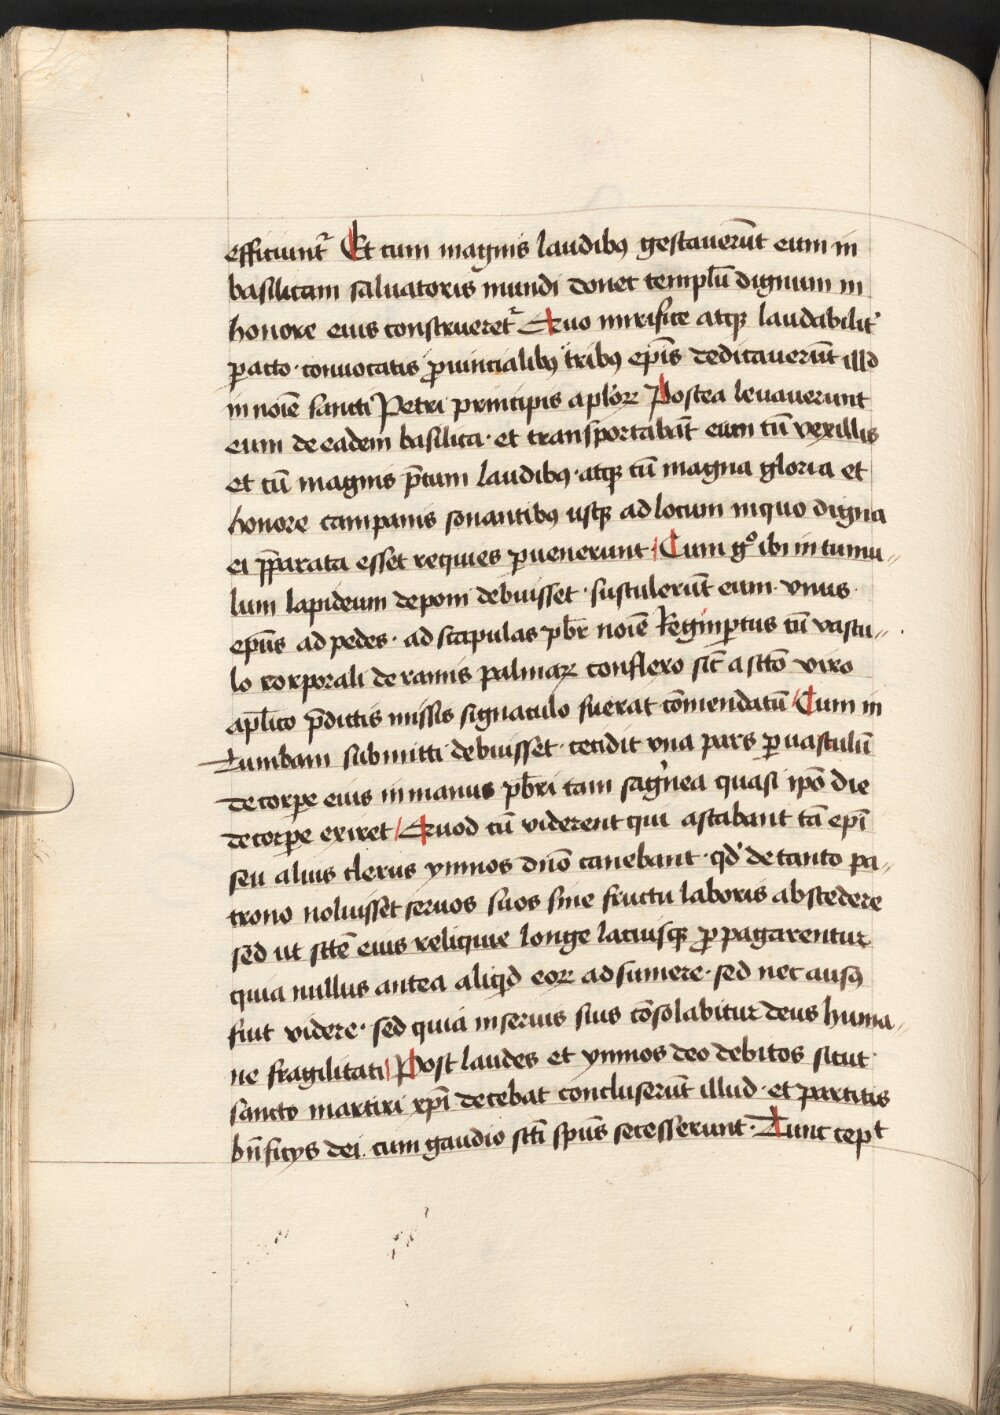 efficiunt᷑ Et cum magnis laudibꝰ gestauerūt eum in
basilicam saluatoris mundi donec templū dignum in
honore eius construeret᷑ Quo mirifice atqꝫ laudabilit᷑
ꝑacto · conuocatis ꝓuincialibꝰ tribꝰ ep̄is dedicauerūt illd
in noīe sancti Petri principis aplōꝝ Postea leuauerunt
eum de eadem basilica · et transportabāt eum cū vexillis
et cū magnis p̄cum laudibꝰ · atqꝫ cū magna gloria et
honore campanis sonantibꝰ usqꝫ ad locum in quo digna
ei p̄parata esset requies ꝑuenerunt / Cum gº ibi in tumu〃
lum lapideum deponi debuisset · sustulerūt eum · vnus ·
ep̄us ad pedes · ad scapulas pb̄r noīe Reginꝑtus cū vascu〃
lo corporali de ramis palmaꝝ conflexo sic̄ a sc̄o viro
apl̄ico p̄dictis missis signaculo fuerat cōmendatū / Cum in
Tumbam submitti debuisset · cecidit vna pars ꝑ vasculū
de corꝑe eius in manus pb̄ri tam sag'nea quasi ip̄o die
de corꝑe exiret / Quod cū viderent qui astabant tā ep̄i
seu alius clerus ymnos dn̄o canebant · qd' de tanto pa〃
trono noluisset seruos suos sine fructu laboris abscedere
sed ut sc̄e eius reliquie longe lateisqꝫ ꝓpagarentur
quia nullus antea aliqd eoꝝ adsumere · sed nec ausꝰ
fuit videre · sed quia in seruis suis cōsolabitur deus huma〃
ne fragilitati / Post laudes et ymnos deo debitos sicut
sancto martiri xp̄i decebat concluserūt illud · et partitis
bn̄ficijs dei cum gaudio sc̄i sp̄us secesserunt · Tunc cepᵗ